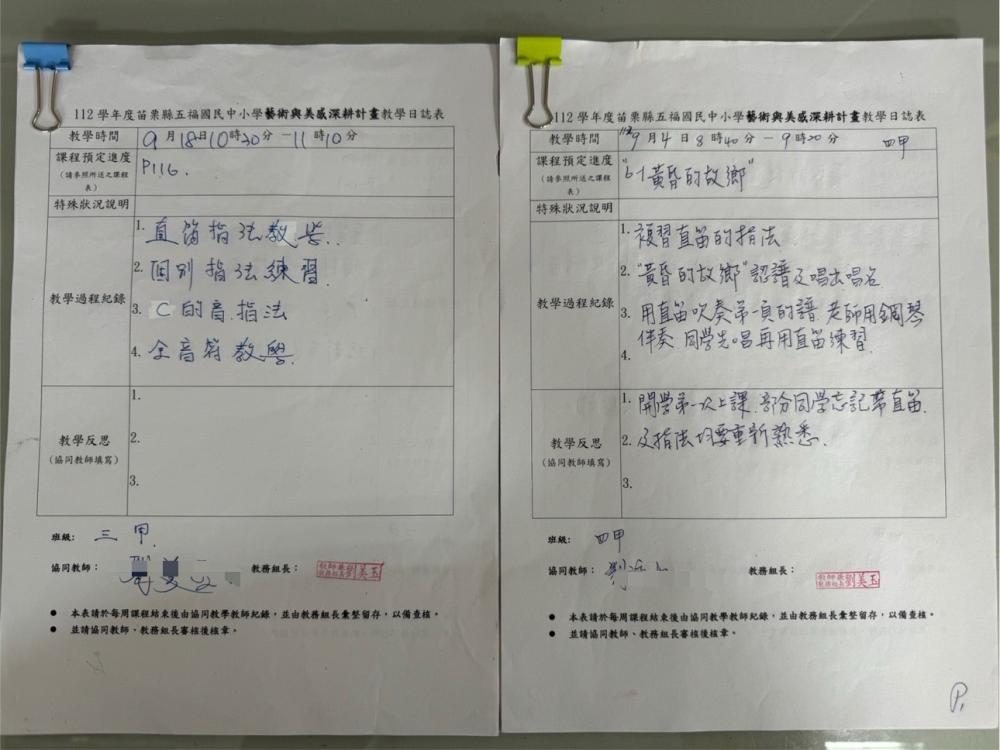 112 學年度苗栗縣五福國民中小學藝術與美感深耕計畫教學日誌表
教學時間
9月18日10時30分 - 11時10分
課程預定進度
(請參照所送之課程表)
P116.
特殊狀況說明
教學過程紀錄
1. 直笛指法教學.
2. 個別指法練習
3. C的音.指法
4. 全音符教學
教學反思
(協同教師填寫)
1.
2.
3.
班級: 三甲
協同教師:
教務組長:
● 本表請於每周課程結束後由協同教學教師紀錄，並由教務組長彙整留存，以備查核。
● 並請協同教師、教務組長審核後核章。
112 學年度苗栗縣五福國民中小學藝術與美感深耕計畫教學日誌表
教學時間
9月4日8時40分 - 9時20分 四甲
課程預定進度
(請參照所送之課程表)
"6-1黃昏的故鄉"
特殊狀況說明
教學過程紀錄
1. 複習直笛的指法
2. "黃昏的故鄉"認譜及唱出唱名
3. 用直笛吹奏第一頁的譜 老師用鋼琴
伴奏 同學先唱再用直笛練習
4.
教學反思
(協同教師填寫)
1. 開學第一次上課.部分同學忘記帶直笛
2. 及指法均要重新熟悉.
3.
班級: 四甲
協同教師:
教務組長:
● 本表請於每周課程結束後由協同教學教師紀錄，並由教務組長彙整留存，以備查核。
● 並請協同教師、教務組長審核後核章。
P1